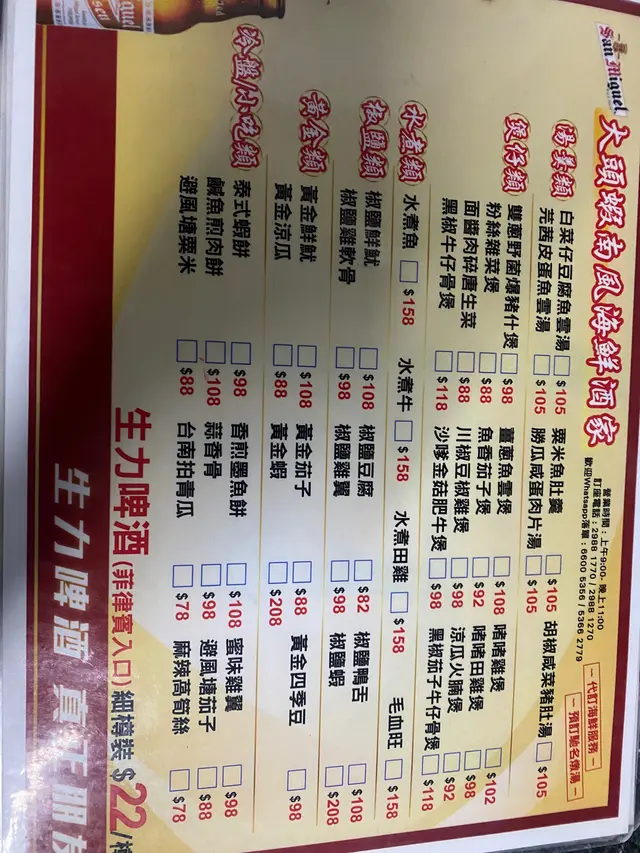 San Miguel
大頭蝦南風海鮮酒家
營業時間：上午9:00- 晚上11:00
訂座電話：2988 1770 / 2988 1270
歡迎Whatsapp落單：6600 5356 / 5366 2779
代訂海鮮服務
預訂馳名燉湯
湯羹類
白菜仔豆腐魚雲湯 $105 粟米魚肚羹 $105 胡椒咸菜豬肚湯 $105
芫茜皮蛋魚雲湯 $105 勝瓜咸蛋肉片湯 $105
煲仔類
雙蔥野菌爆豬什煲 $98 薑蔥魚雲煲 $108 啫啫雞煲 $102
粉絲雜菜煲 $88 魚香茄子煲 $92 啫啫田雞煲 $98
面醬肉碎唐生菜 $88 川椒豆椒雞煲 $98 涼瓜火腩煲 $92
黑椒牛仔骨煲 $118 沙嗲金菇肥牛煲 $98 黑椒茄子牛仔骨煲 $118
水煮類
水煮魚 $158 水煮牛 $158 水煮田雞 $158 毛血旺 $158
椒鹽類
椒鹽鮮魷 $108 椒鹽豆腐 $82 椒鹽鴨舌 $108
椒鹽雞軟骨 $98 椒鹽雞翼 $98 椒鹽蝦 $208
黃金類
黃金鮮魷 $108 黃金茄子 $88 黃金四季豆 $98
黃金涼瓜 $88 黃金蝦 $208
冷盤/小吃類
泰式蝦餅 $98 香煎墨魚餅 $108 蜜味雞翼 $98
鹹魚煎肉餅 $108 蒜香骨 $98 避風塘茄子 $88
避風塘粟米 $88 台南拍青瓜 $78 麻辣萵筍絲 $78
生力啤酒(菲律賓入口)細樽裝 $22/樽
生力啤酒 真正朋友